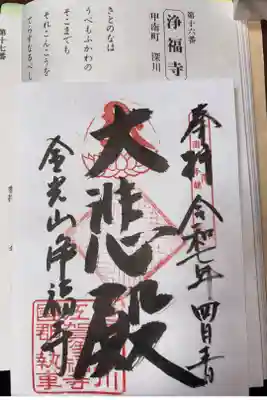 第十六番
浄福寺
甲南町 深川
さとのなは
うべもふかわの
そこまでも
それこんこうを
てらすなるべし
第十七番
奉拝 令和七年四月
大悲殿
金光山浄福寺